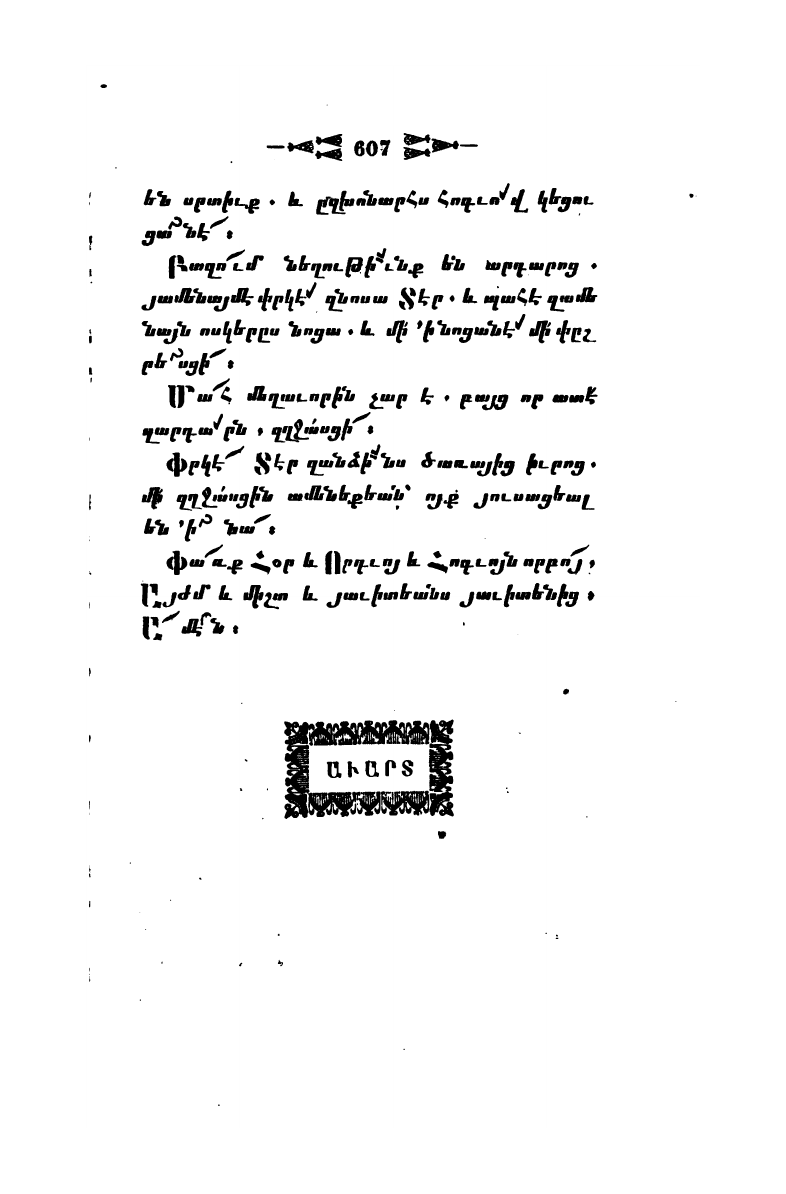 607
են սրտիւք. և ըզխոնարհս հոգւով կեցու
ցանէ։
Բազում նեղութիւնք են արդարոց.
յամենայմէ փրկէ զնոսա Տէր. և պահէ զամե
նայն ոսկերըս նոցա. և մի ՚ինոցանէ մի փըշ
րեսցի։
Մահ մեղաւորին չար է, բայց որ ատէ
զարդարն, զղջասցի։
Փրկէ Տէր զանձինս ծառայից իւրոց.
մի զղջասցին ամենեքեան՝ ոյք յուսացեալ
են ՚ի նա։
Փառք Հօր և Որդւոյ և Հոգւոյն սրբոյ,
Այժմ և միշտ և յաւիտեանս յաւիտենից,
Ամէն։
ԱՒԱՐՏ